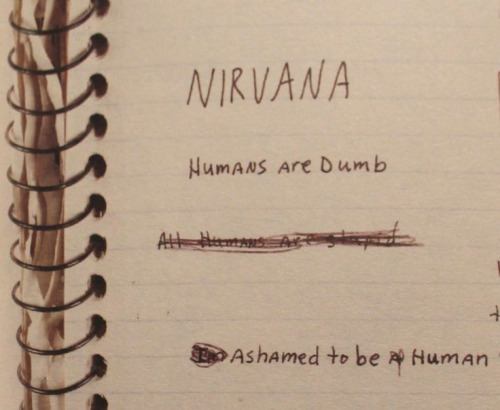 NIRVANA
Humans are Dumb
All Humans are stupid
Ashamed to be a Human